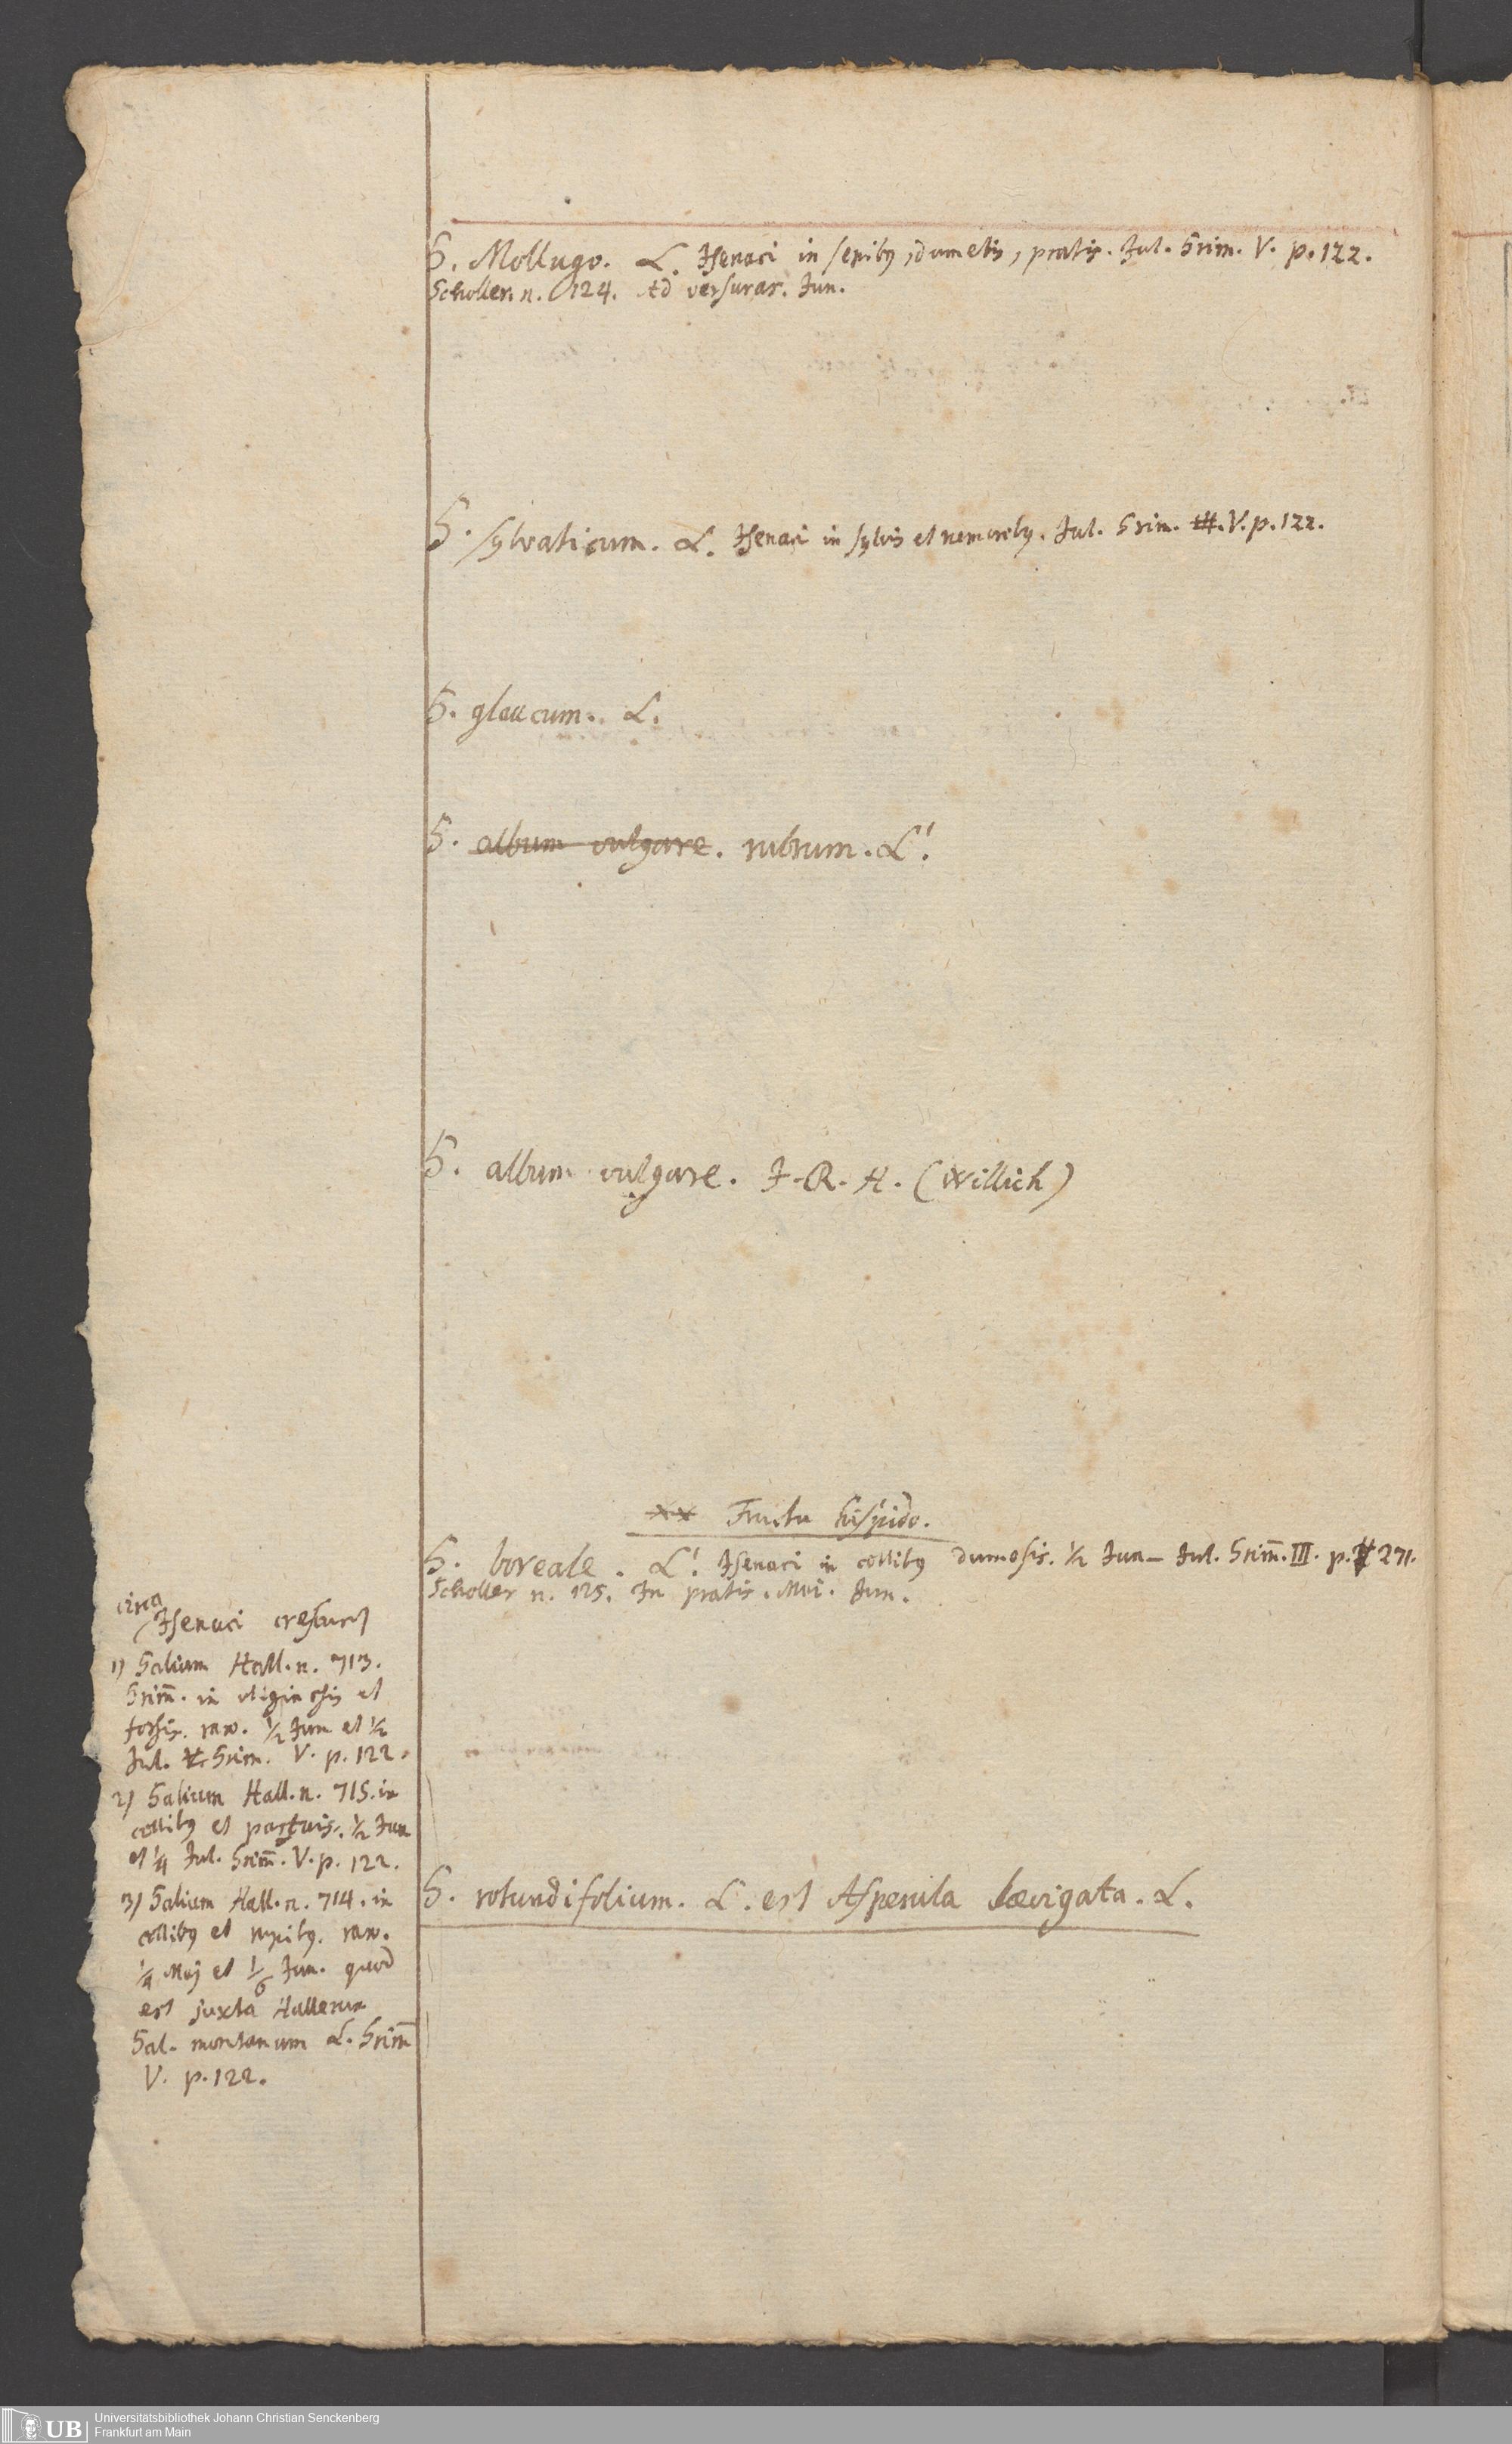 G. Mollugo. L. Isenaci in sepibus, dumetis, pratis. Jul. Grim. V. p. 122.
Scholler. n. 124. Ad versuras. Jun.
G. sylvaticum. L. Isenaci in sylvis et nemoribus. Jul. Grim. V. p. 122.
G. glaucum. L.
G. album vulgare. rubrum. L!
G. album vulgare. I. R. H. (Willich)
xx Fructu hispido.
G. boreale. L! Isenaci in collibus dumosis. ½ Jun – Jul. Grim̄. III. p. 271.
Scholler n. 125. In pratis. Mai. Jun.
circa
Isenaci crescunt
1) Galium Hall. n. 713.
Grim̄. in uliginosis et
fossis. raro. ½ Jun et ½
Jul. Grim. V. p. 122.
2) Galium Hall. n. 715. in
collibus et pascuis. ½ Jun
et ¼ Jul. Grim̄. V. p. 122.
3) Galium Hall. n. 714. in
collibus et rupibus. raro.
¼ Maj et 1/6 Jun. quod
est juxta Hallerum
Gal. montanum L. Grim̄
V. p. 122.
G. rotundifolium. L. est Asperula laevigata. L.
UB Universitätsbibliothek Johann Christian Senckenberg
Frankfurt am Main